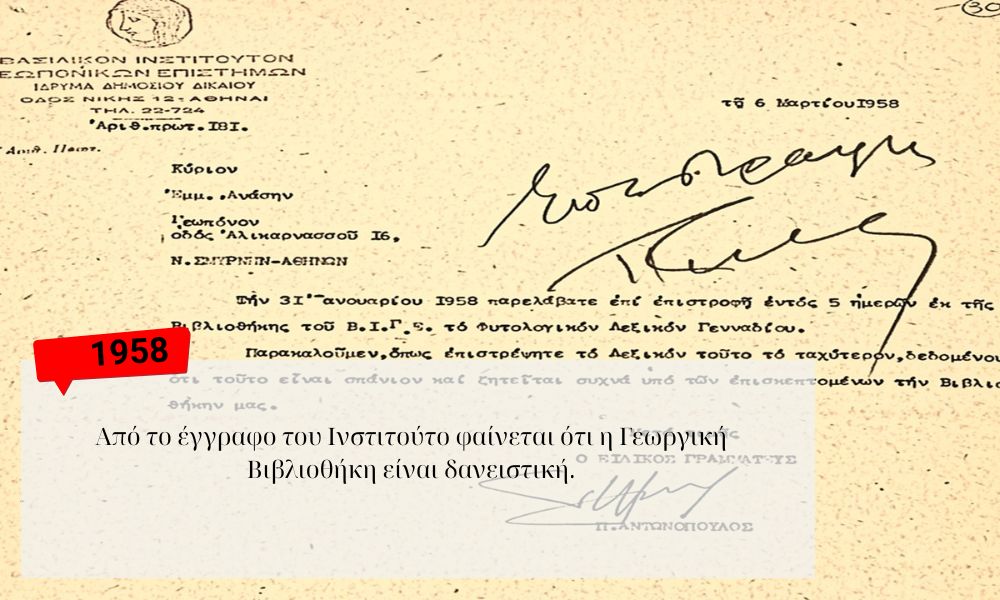 30
ΒΑΣΙΛΙΚΟΝ ΙΝΣΤΙΤΟΥΤΟΝ
ΕΩΠΟΝΙΚΩΝ ΕΠΙΣΤΗΜΩΝ
ΙΔΡΥΜΑ ΔΗΜΟΣΙΟΥ ΔΙΚΑΙΟΥ
ΟΔΟΣ ΝΙΚΗΣ 12 - ΑΘΗΝΑΙ
ΤΗΛ. 22-724
Ἀριθ.πρωτ.181.
τῇ 6 Μαρτίου1958
Κύριον
Ἐμμ. Ἀνάσην
Γεωπόνον
ὁδός Ἀλικαρνασσοῦ 16,
Ν.ΣΜΥΡΝΗΝ-ΑΘΗΝΩΝ
Τήν 31 Ἰανουαρίου 1958 παρελάβατε ἐπί ἐπιστροφῇ ἐντός 5 ἡμερῶν ἐκ τῆς
Βιβλιοθήκης τοῦ Β.Ι.Γ.Ε. τό Φυτολογικόν Λεξικόν Γενναδίου.
Παρακαλοῦμεν,ὅπως ἐπιστρέψητε τό Λεξικόν τοῦτο τό ταχύτερον,δεδομένου
ὅτι τοῦτο εἶναι σπάνιον καί ζητεῖται συχνά ὑπό τῶν ἐπισκεπτομένων τήν Βιβλιο
θήκην μας.
1958
Από το έγγραφο του Ινστιτούτο φαίνεται ότι η Γεωργική
Βιβλιοθήκη είναι δανειστική.
Ο ΕΙΔΙΚΟΣ ΓΡΑΜΜΑΤΕΥΣ
Π.ΑΝΤΩΝΟΠΟΥΛΟΣ